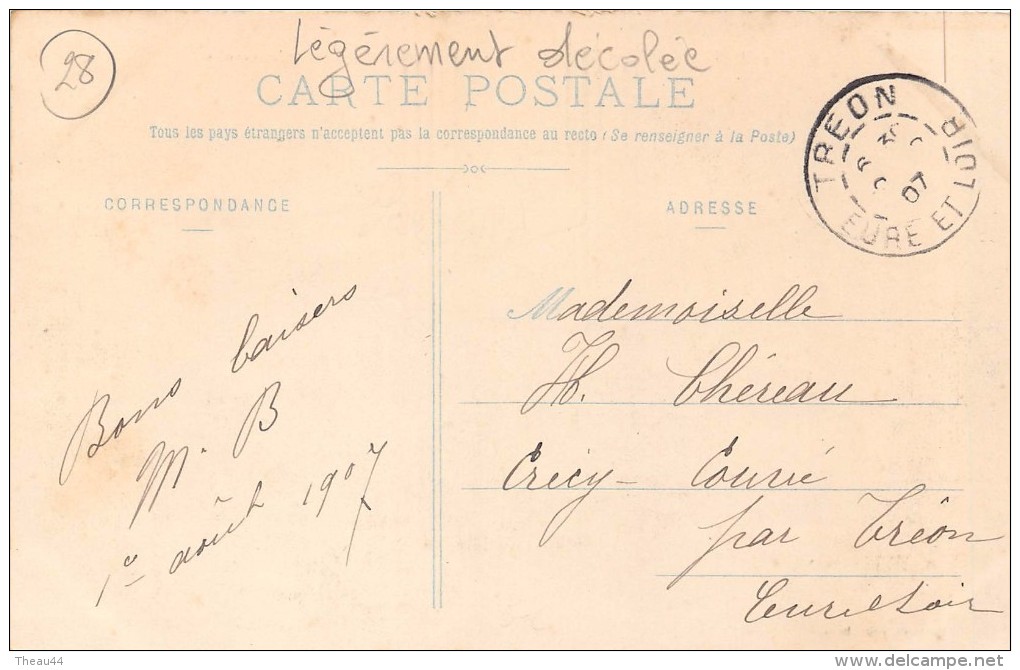 28
Légérement décolée
CARTE POSTALE
Tous les pays étrangers n'acceptent pas la correspondance au recto (Se renseigner à la Poste)
TREON
07
EURE ET LOIR
CORRESPONDANCE
ADRESSE
Bons baisers
M. B
1er août 1907
Mademoiselle
H. Chéreau
Crécy-Couvé
par Tréon
Eure et Loir
Theau44
delcampe.net